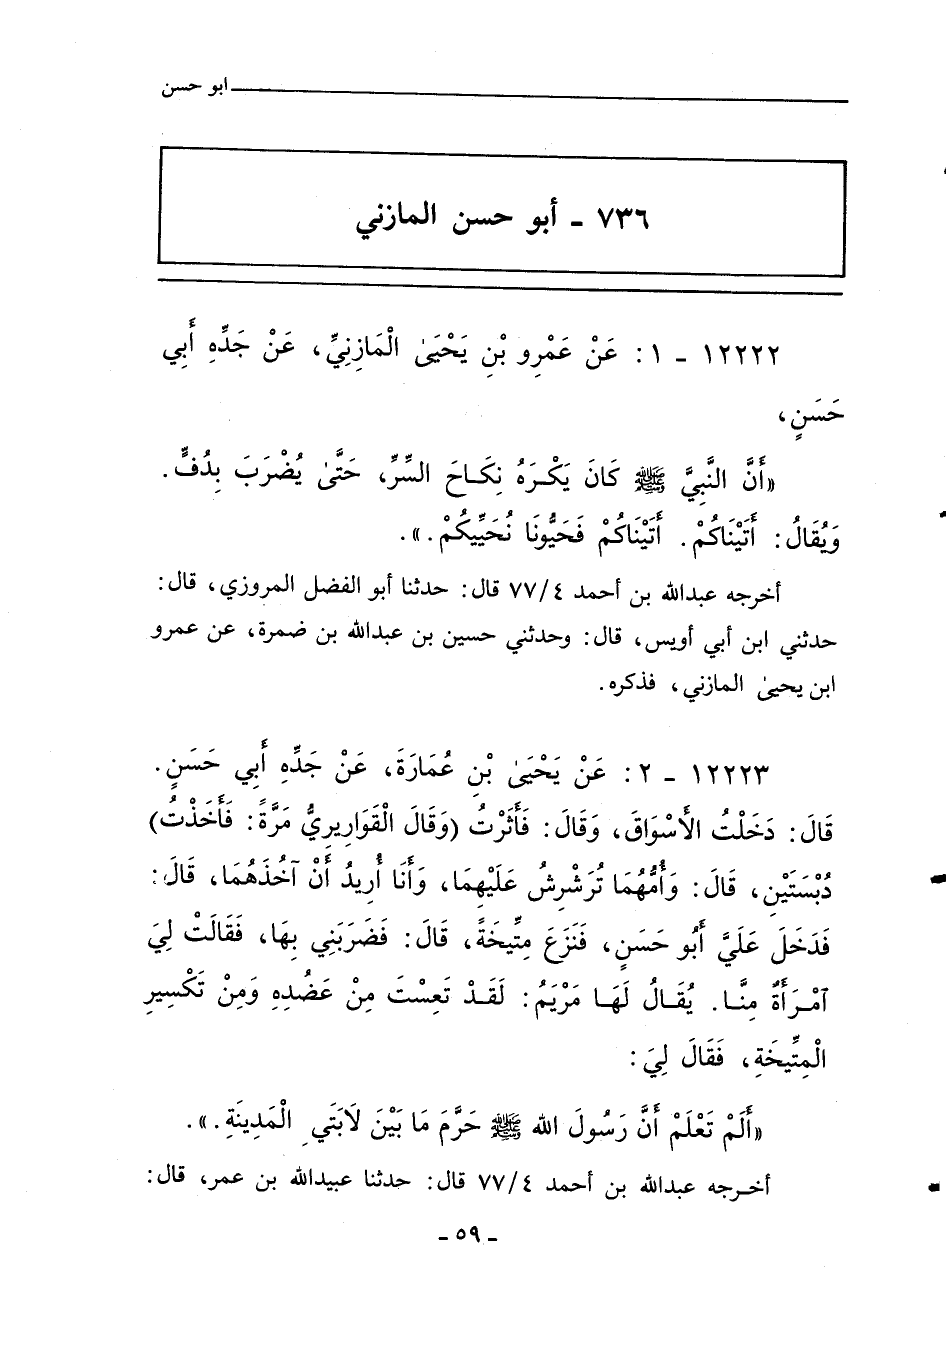 ابو حسن
٧٣٦ ـ أبو حسن المازني
١٢٢٢٢ ـ ١ : عَنْ عَمْرِو بْنِ يَحْيَىٰ الْمَازِنِيِّ، عَنْ جَدِّهِ أَبِي
حَسَنٍ،
«أَنَّ النَّبِيَّ ﷺ كَانَ يَكْرَهُ نِكَاحَ السِّرِّ، حَتَّىٰ يُضْرَبَ بِدُفٍّ.
وَيُقَالُ: أَتَيْنَاكُمْ. أَتَيْنَاكُمْ فَحَيُّونَا نُحَيِّيكُمْ.».
أخرجه عبدالله بن أحمد ٧٧/٤ قال: حدثنا أبو الفضل المروزي، قال:
حدثني ابن أبي أويس، قال: وحدثني حسين بن عبدالله بن ضمرة، عن عمرو
ابن يحيىٰ المازني، فذكره.
١٢٢٢٣ ـ ٢ : عَنْ يَحْيَىٰ بْنِ عُمَارَةَ، عَنْ جَدِّهِ أَبِي حَسَنٍ.
قَالَ: دَخَلْتُ الْأَسْوَاقَ، وَقَالَ: فَأَثَرْتُ (وَقَالَ الْقَوَارِيرِيُّ مَرَّةً: فَأَخَذْتُ)
دُبْسَتَيْنِ، قَالَ: وَأُمُّهُمَا تُرَشْرِشُ عَلَيْهِمَا، وَأَنَا أُرِيدُ أَنْ آخُذَهُمَا، قَالَ:
فَدَخَلَ عَلَيَّ أَبُو حَسَنٍ، فَنَزَعَ مِتِّيخَةً، قَالَ: فَضَرَبَنِي بِهَا، فَقَالَتْ لِيَ
ٱمْرَأَةٌ مِنَّا. يُقَالُ لَهَا مَرْيَمُ: لَقَدْ تَعِسْتَ مِنْ عَضُدِهِ وَمِنْ تَكْسِيرِ
الْمِتِّيخَةِ، فَقَالَ لِيَ:
«أَلَمْ تَعْلَمْ أَنَّ رَسُولَ الله ﷺ حَرَّمَ مَا بَيْنَ لَابَتَيِ الْمَدِينَةِ.».
أخرجه عبدالله بن أحمد ٧٧/٤ قال: حدثنا عبيدالله بن عمر، قال:
ـ ٥٩ ـ